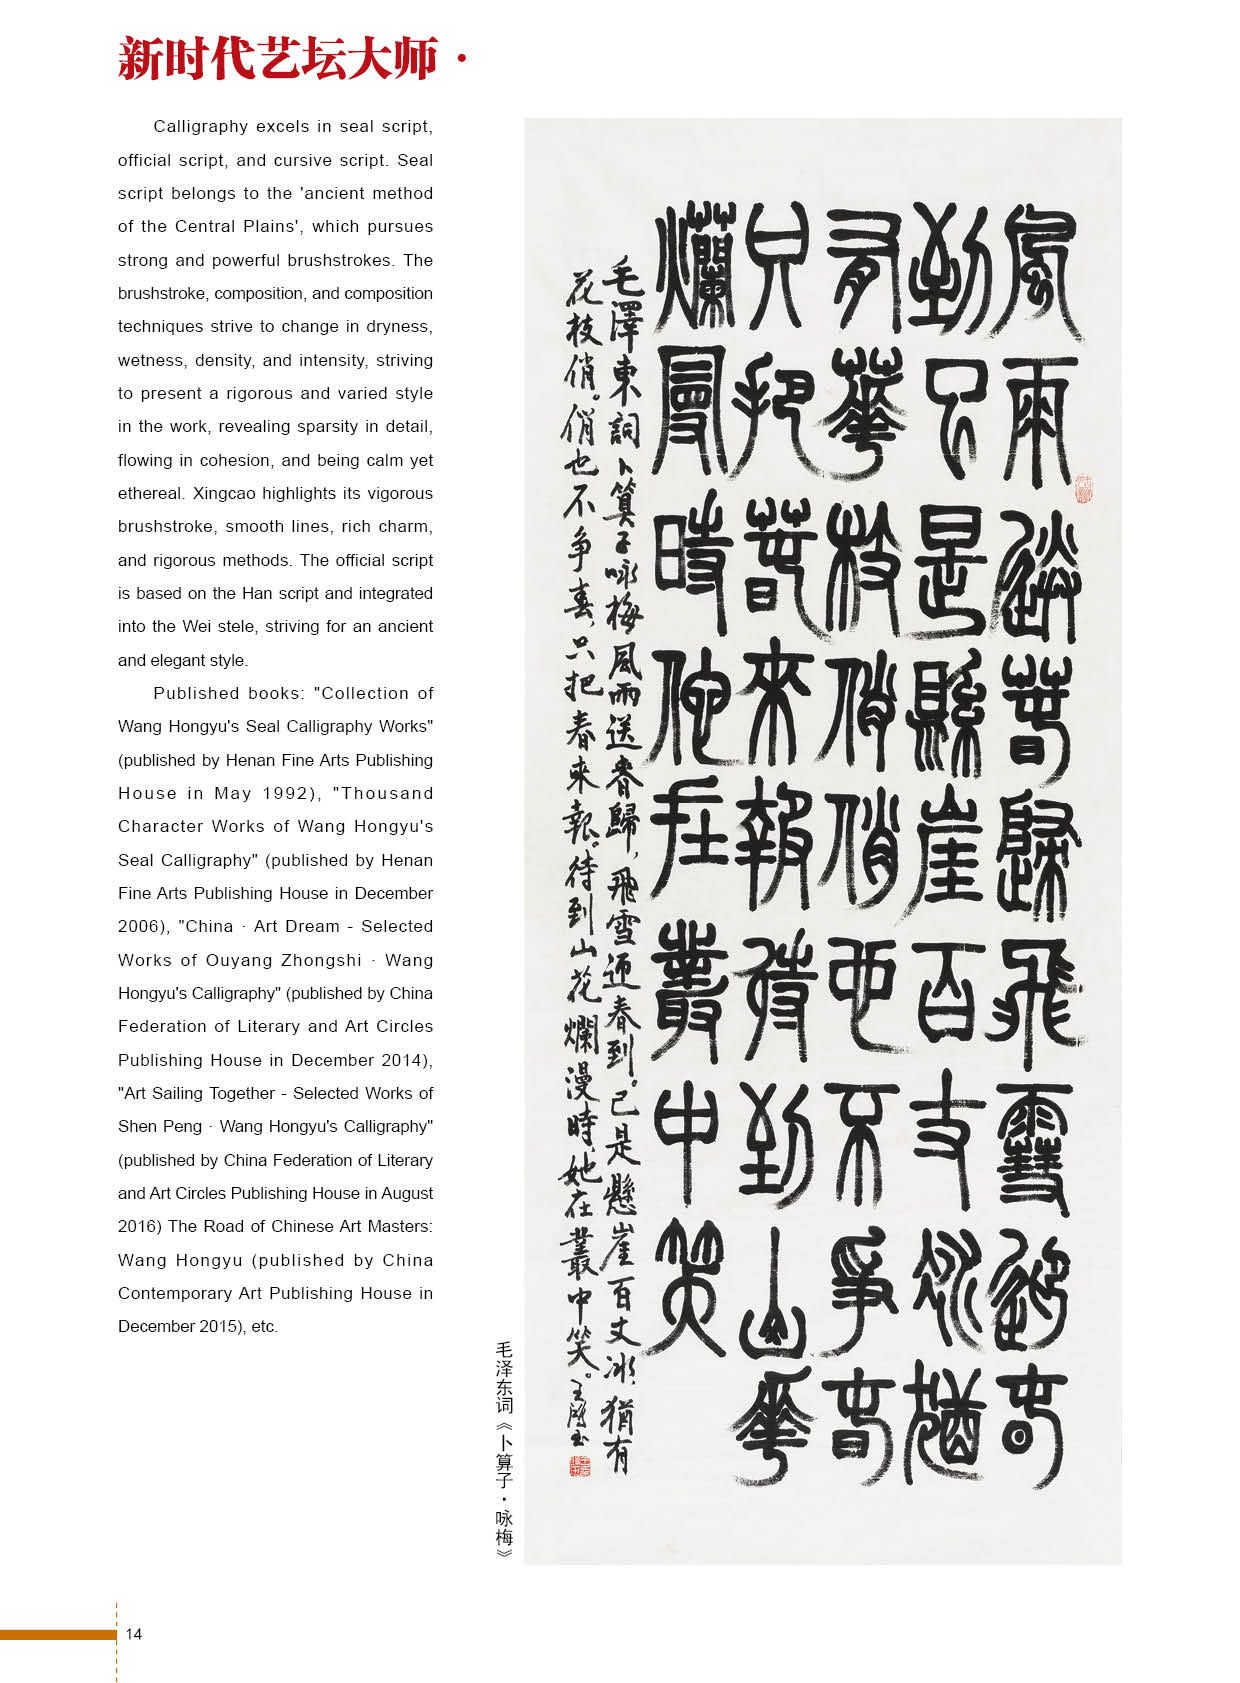 新时代艺坛大师·
Calligraphy excels in seal script,
official script, and cursive script. Seal
script belongs to the 'ancient method
of the Central Plains', which pursues
strong and powerful brushstrokes. The
brushstroke, composition, and composition
techniques strive to change in dryness,
wetness, density, and intensity, striving
to present a rigorous and varied style
in the work, revealing sparsity in detail,
flowing in cohesion, and being calm yet
ethereal. Xingcao highlights its vigorous
brushstroke, smooth lines, rich charm,
and rigorous methods. The official script
is based on the Han script and integrated
into the Wei stele, striving for an ancient
and elegant style.
Published books: "Collection of
Wang Hongyu's Seal Calligraphy Works"
(published by Henan Fine Arts Publishing
House in May 1992), "Thousand
Character Works of Wang Hongyu's
Seal Calligraphy" (published by Henan
Fine Arts Publishing House in December
2006), "China · Art Dream - Selected
Works of Ouyang Zhongshi · Wang
Hongyu's Calligraphy" (published by China
Federation of Literary and Art Circles
Publishing House in December 2014),
"Art Sailing Together - Selected Works of
Shen Peng · Wang Hongyu's Calligraphy"
(published by China Federation of Literary
and Art Circles Publishing House in August
2016) The Road of Chinese Art Masters:
Wang Hongyu (published by China
Contemporary Art Publishing House in
December 2015), etc.
風雨送春歸飛雪迎春
到已是縣崖百丈冰猶
有華枝俏俏也不爭春
只把春來報待到山華
爛曼時他在叢中笑
毛澤東詞卜算子咏梅風雨送春歸,飛雪迎春到。已是懸崖百丈冰,猶有
花枝俏。俏也不争春,只把春来報。待到山花爛漫時,她在叢中笑。王鴻玉
毛泽东词《卜算子·咏梅》
14